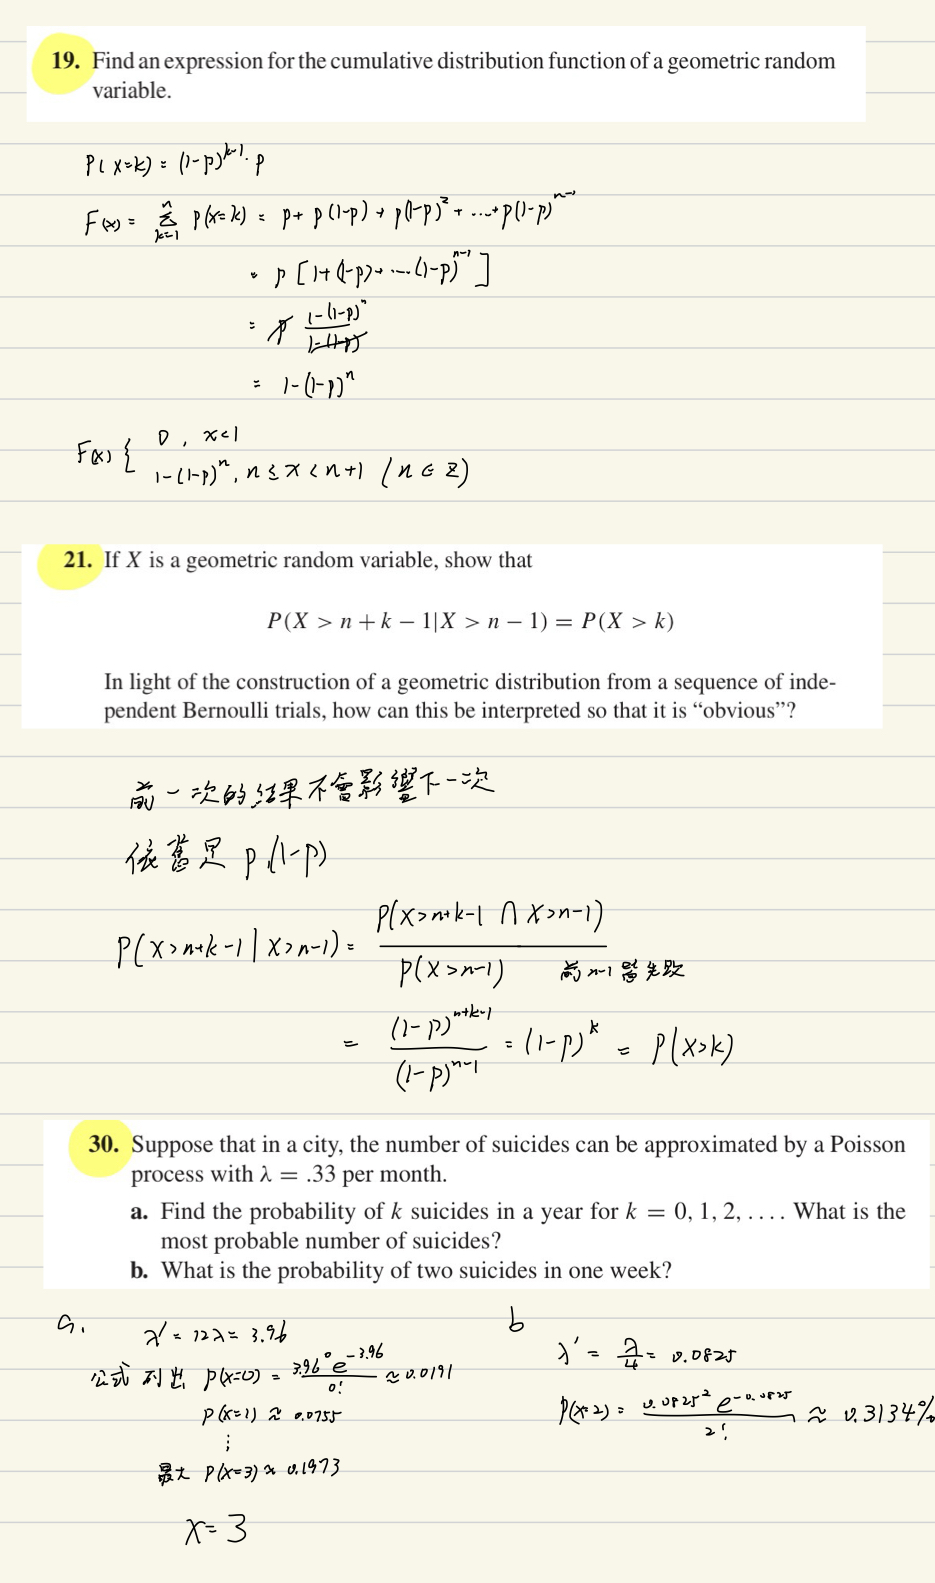 19. Find an expression for the cumulative distribution function of a geometric random
variable.
P(X=k) = (1-p)^{k-1}·p
F(x) = Σ_{k=1}^{n} P(X=k) = p + p(1-p) + p(1-p)^2 + ...+ p(1-p)^{n-1}
= p [1+(1-p)+ ....(1-p)^{n-1}]
= p \frac{1-(1-p)^n}{1-(1-p)}
= 1-(1-p)^n
F(x) { 0 , x<1
1-(1-p)^n, n ≤ x < n+1 (n ∈ Z)
21. If X is a geometric random variable, show that
P(X > n + k − 1|X > n − 1) = P(X > k)
In light of the construction of a geometric distribution from a sequence of inde-
pendent Bernoulli trials, how can this be interpreted so that it is “obvious”?
前一次的結果不會影響下一次
依舊是 p,(1-p)
P(X>n+k-1 | X>n-1) = \frac{P(X>n+k-1 ∩ X>n-1)}{P(X>n-1)} 前 n-1 皆失敗
= \frac{(1-p)^{n+k-1}}{(1-p)^{n-1}} = (1-p)^k = P(X>k)
30. Suppose that in a city, the number of suicides can be approximated by a Poisson
process with λ = .33 per month.
a. Find the probability of k suicides in a year for k = 0, 1, 2, . . . . What is the
most probable number of suicides?
b. What is the probability of two suicides in one week?
a.
λ' = 12λ = 3.96
公式列出 P(X=0) = \frac{3.96^0 e^{-3.96}}{0!} ≈ 0.0191
P(X=1) ≈ 0.0755
⋮
最大 P(X=3) ≈ 0.1973
X=3
b
λ' = \frac{λ}{4} = 0.0825
P(X=2) = \frac{0.0825^2 e^{-0.0825}}{2!} ≈ 0.3134%